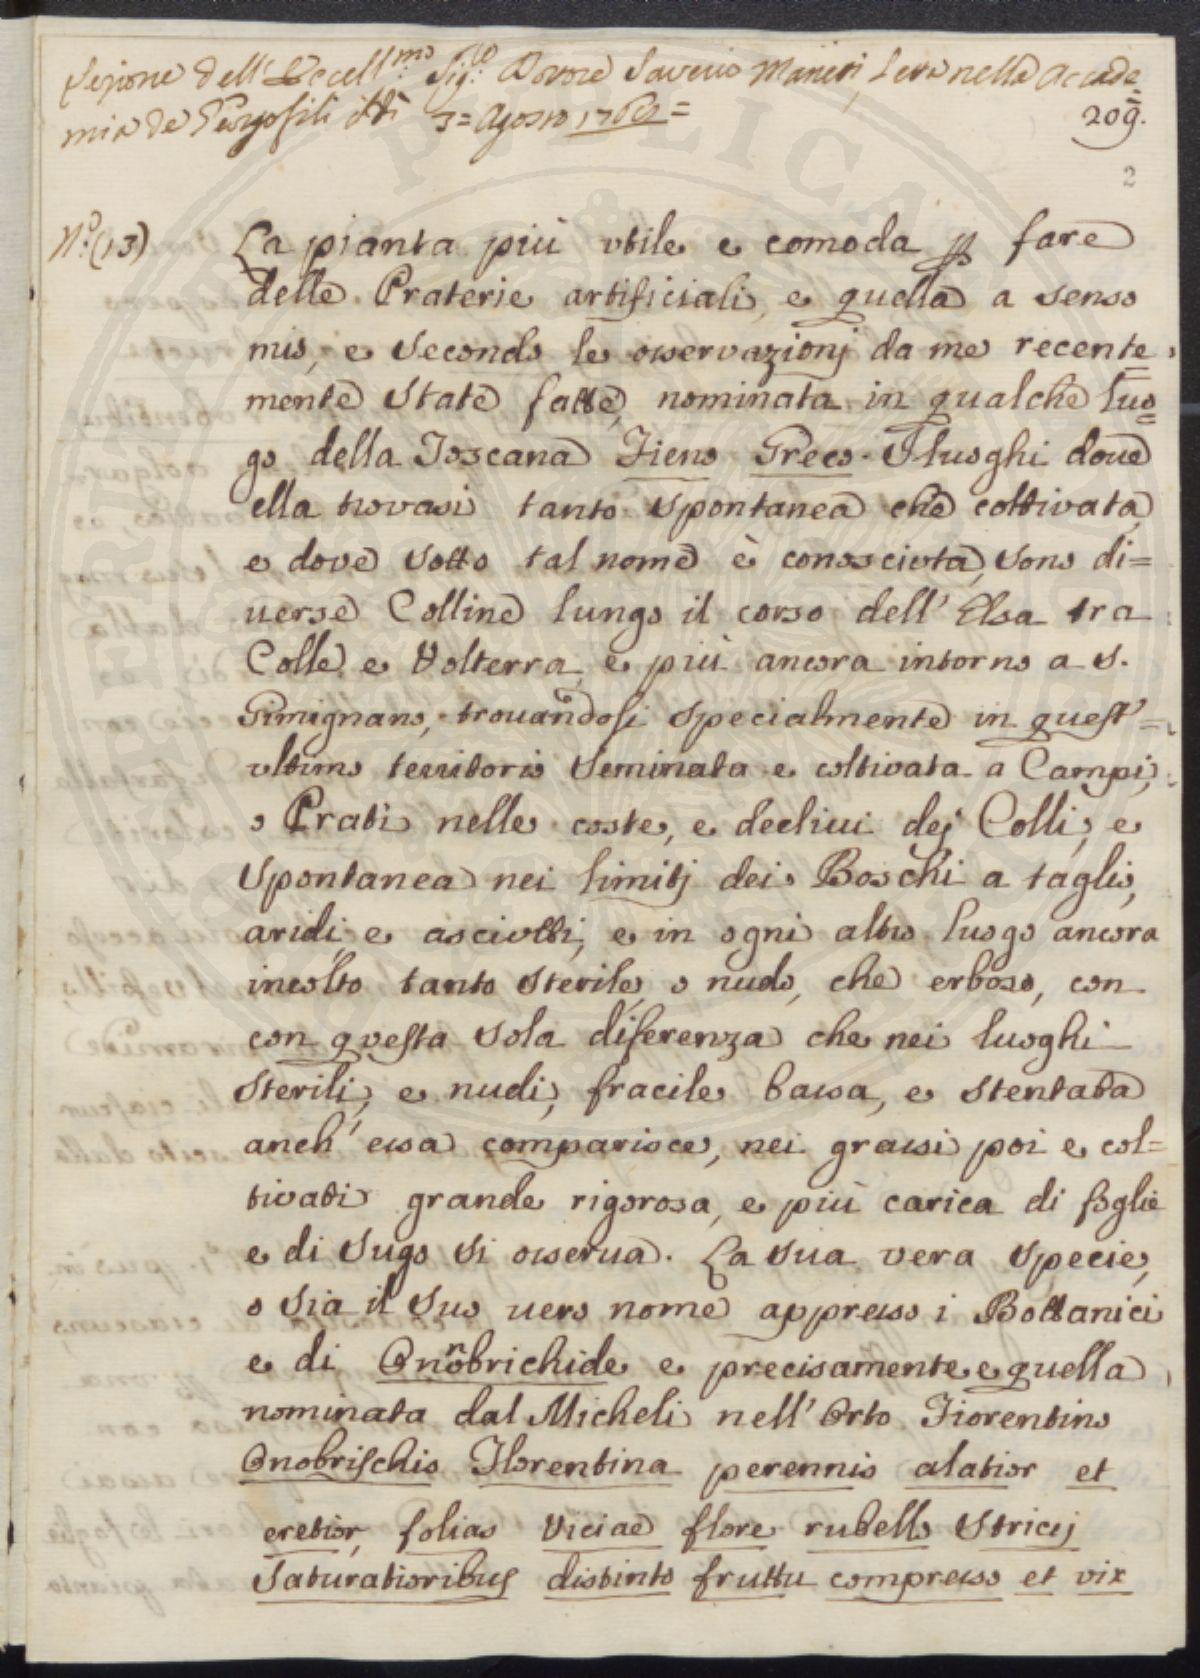 Lezione dell'Eccell:mo Sig:re Dottore Saverio Manetti, Letta nella Accade=
mia de Georgofili il dì 3= Agosto 176 =
209.
2
N.o (13)
La pianta più utile e comoda p fare
delle Praterie artificiali, e quella a senso
mio, e secondo le osservazionj da me recente
mente state fatte, nominata in qualche luo=
go della Toscana Fieno Greco. I luoghi dove
ella trovasi tanto spontanea che coltivata,
e dove sotto tal nome è conosciuta, sono di=
verse Colline lungo il corso dell'Elsa tra
Colle e Volterra, e più ancora intorno a S.
Gimignano, trovandosi specialmente in quest'=
ultimo territorio seminata e coltivata a Campi,
o Prati nelle coste, e declivi dej Colli, e
spontanea nei limitj dei Boschi a taglio,
aridi, e asciutti, e in ogni altro luogo ancora
incolto tanto sterile, o nudo, che erboso, con
con questa sola diferenza che nei luoghi
sterili, e nudi, fracile bassa, e stentata
anch'essa comparisce, nei grassi poi e col=
tivati grande rigorosa, e più carica di foglie
e di sugo si osserva. La sua vera specie,
o sia il suo vero nome appresso i Bottanici
e di Onnobrichide e precisamente e quella
nominata dal Micheli nell'Orto Fiorentino
Onobrischis Florentina perennis alatior et
eretior, folias viciae flore rubello stricij
saturatioribus distinto fruttu compresso et vix